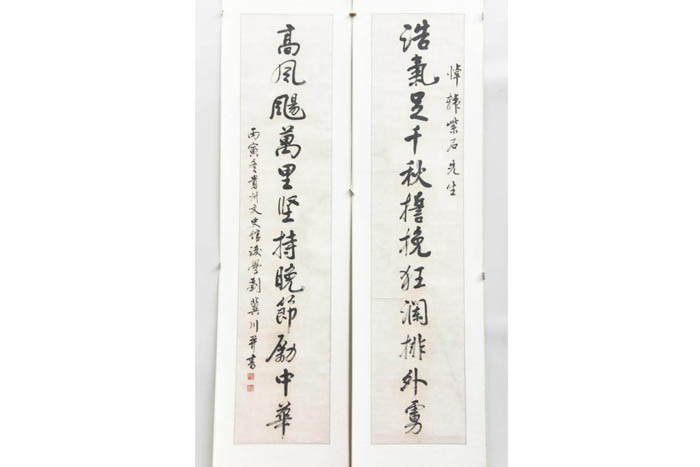 悼韓紫石先生
浩氣足千秋誓挽狂瀾排外虜
高風颺萬里坚持晚節勵中華
丙寅冬貴州文史館後學劉冀川并書